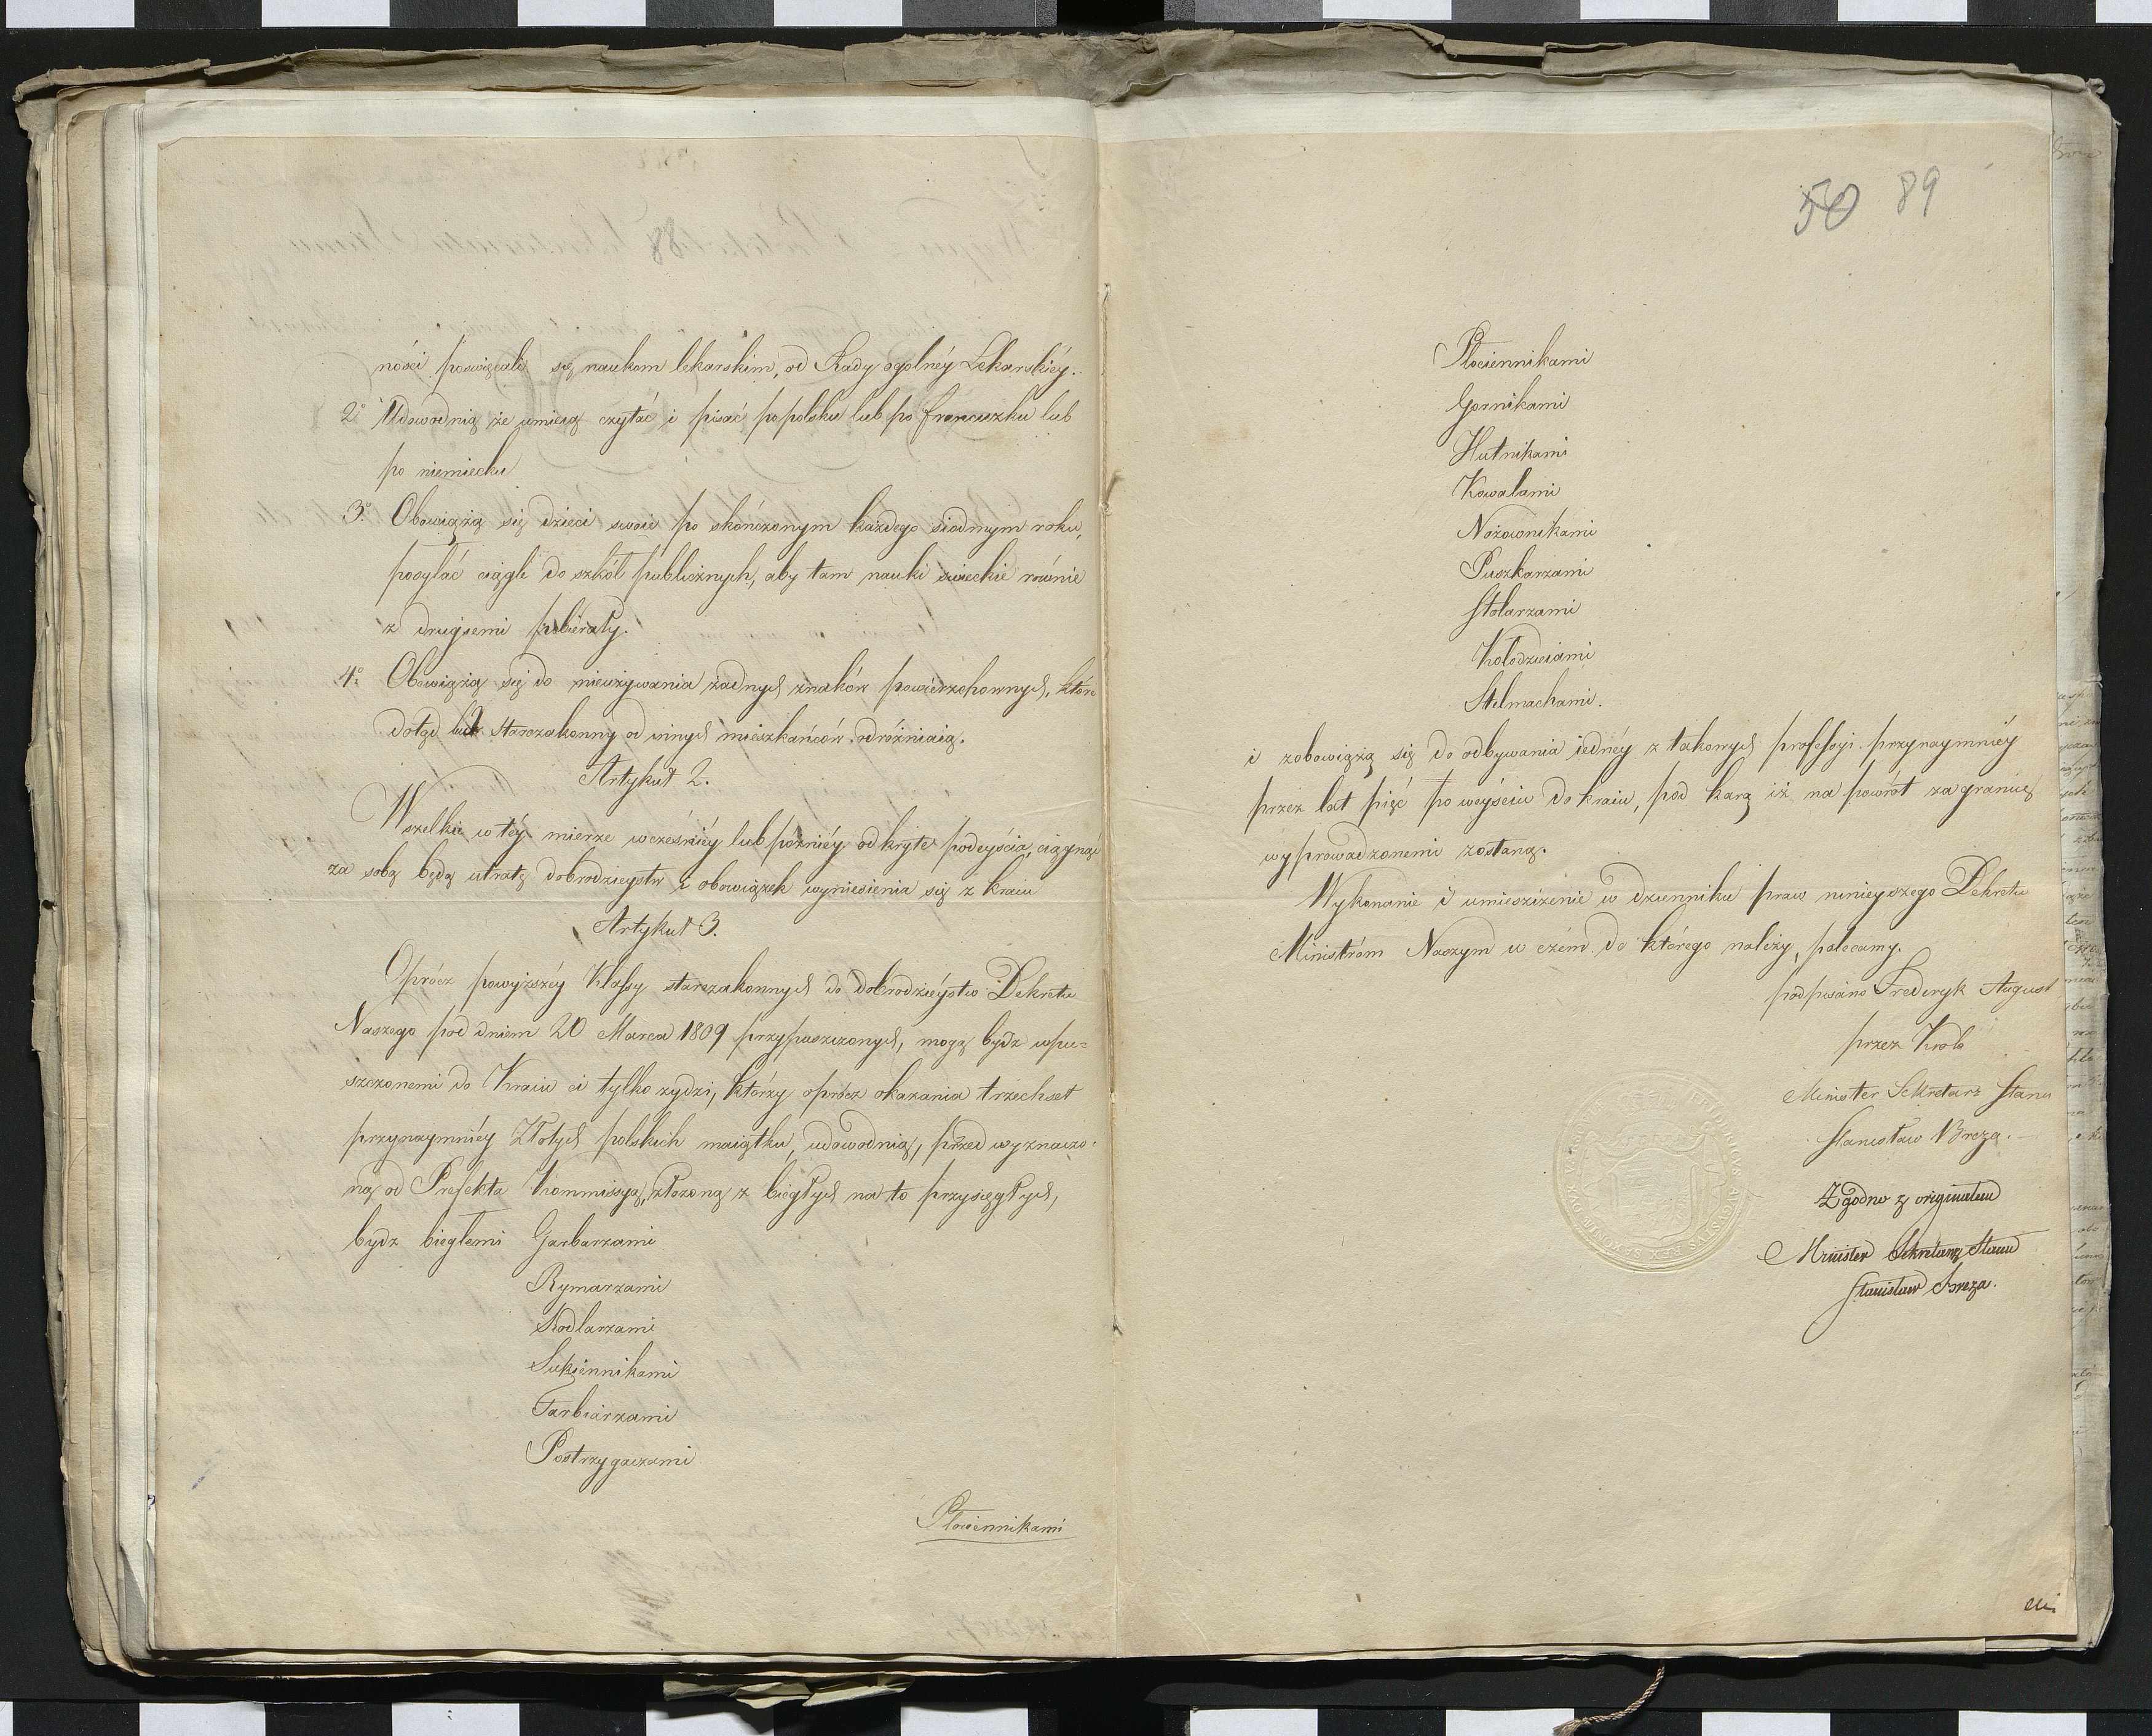 ności poswięcali się naukom lekarskim, od Rady ogolnéy Lekarskiéy.
2° Udowodnią że umieią czytać i pisać po polsku lub po francuzku lub
po niemiecku
3° Obowiążą się dzieci swoie po skończonym każdego siodmym roku,
posyłać ciągle do szkół publicznych, aby tam nauki świeckie rownie
z drugiemi pobierały.
4° Obowiążą się do nieużywania żadnych znaków powierzchownych, które
dotąd lud Starozakonny od innych mieszkańców odróżniaią.
Artykuł 2.
Wszelkie w téy mierze wcześniéy lub późniéy odkryte podeyścia, ciągnąć
za sobą będą utratę dobrodzieystw i obowiązek wyniesienia się z kraiu
Artykuł 3.
Oprócz powyższéy Klassy starozakonnych do dobrodzieystw Dekretu
Naszego pod dniem 20 Marca 1809 przypuszczonych, mogą bydz wpu=
szczonemi do Kraiu ci tylko zydzi, którzy oprócz okazania trzechset
przynaymniéy Złotych polskich maiątku, udowodnią, przed wyznaczo-
ną od Prefekta Kommissyą, złożoną z biegłych na to przysięgłych,
bydz biegłemi Garbarzami
Rymarzami
Siodlarzami
Sukiennikami
Farbiarzami
Postrzygaczami
Płociennikami
50 89
Płociennikami
Gornikami
Hutnikami
Kowalami
Nożownikami
Puszkarzami
Stolarzami
Kołodzieiami
Stelmachami.
i zobowiążą się do odbywania iednéy z takowych professyi przynaymniéy
przez lat pięć po weyściu do kraiu, pod karą iż na powrót za granicę
wyprowadzonemi zostaną.
Wykonanie i umieszczenie w dzienniku praw ninieyszego Dekretu
Ministróm Naszym w czém do którego należy, polecamy.
podpisano Frederyk August
przez Króla
Minister Sekretarz Stanu
Stanisław Breza.
Zgodno z originałem
Minister Sekretarz Stanu
Stanisław Breza.